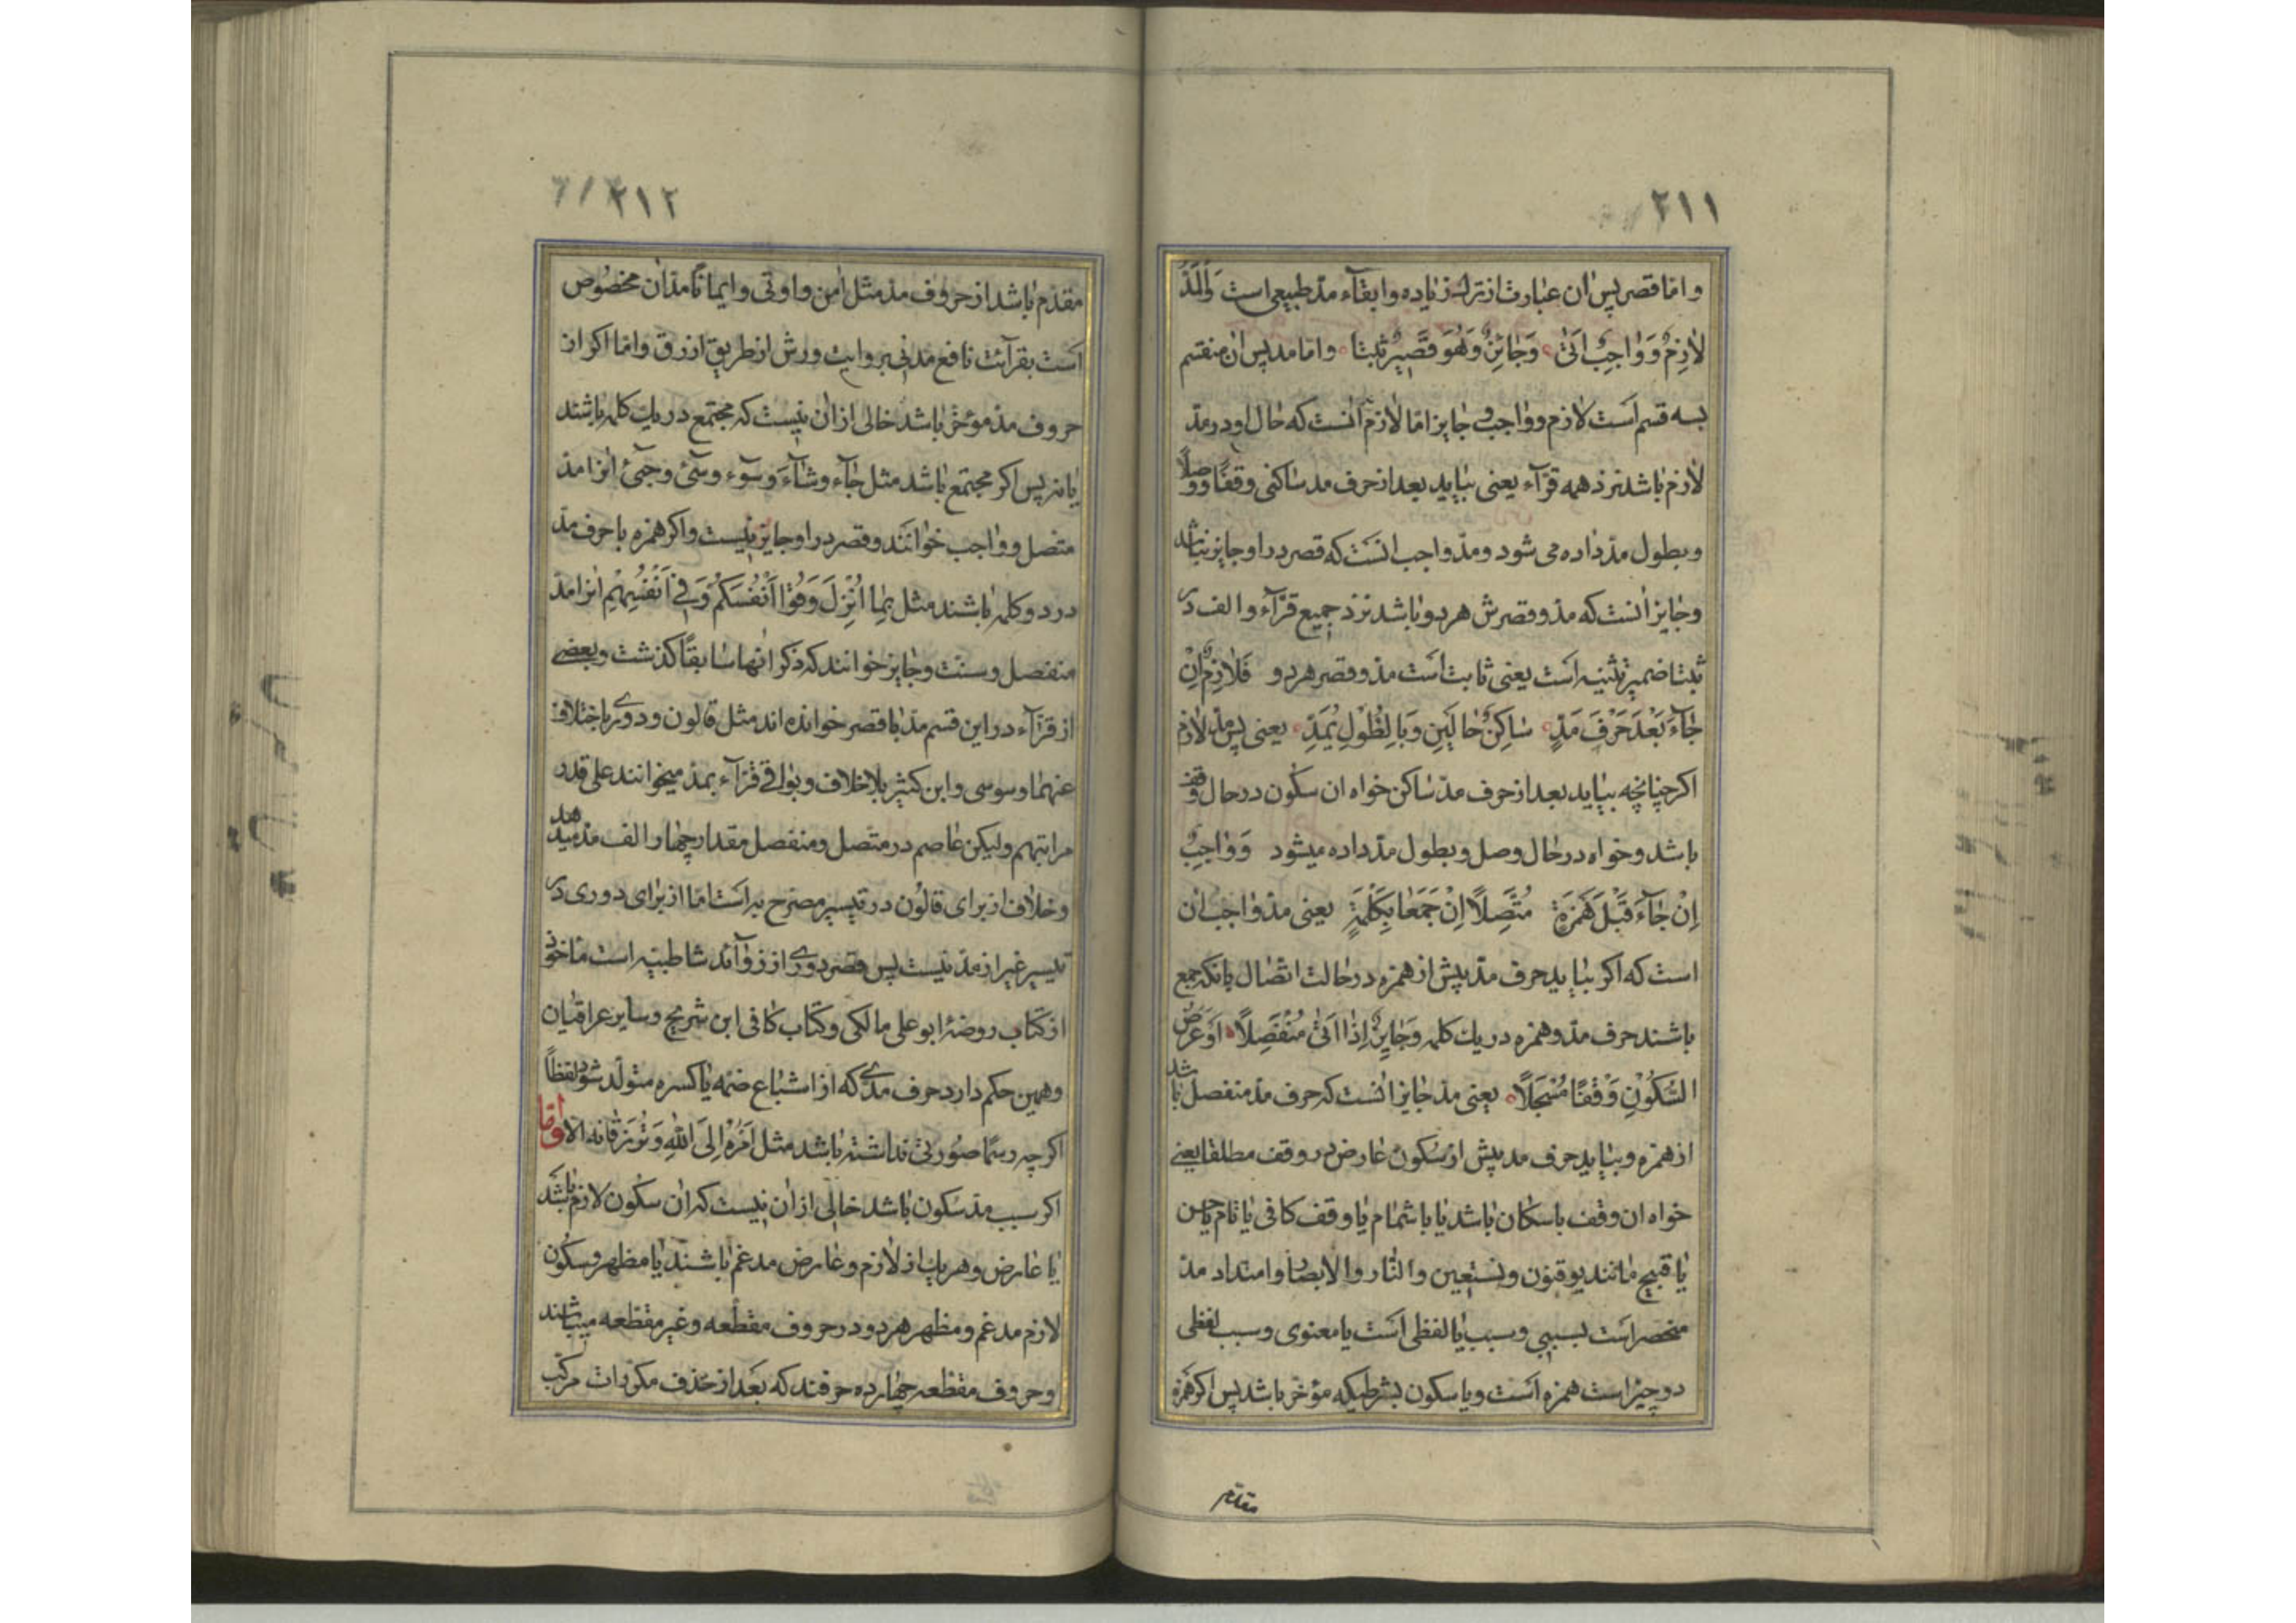 ٢١١
و امّا قصر پس ان عبارت از ترك زیاده و ابقاء مدّ طبیعی است وَالْمَدُّ
لازِمٌ وَ وٰاجِبٌ اَتىٰ وَجٰایِزٌ وَهُوَ وَقَصْرٌ ثَبَتا و امّا مد پس ان منقسم
بسه قسم است لازم و واجب و جایز امّا لازم آنست که حال او در مدّ
لازم باشد نزد همه قرّآء یعنی بیاید بعد از حرف مد ساکنی وقفًا و وصلًا
و بطول مدّ داده می شود و مدّ واجب انست که قصر در او جایز نباشد
و جایز آنست که مدّ و قصرش هر دو باشد نزد جمیع قرّآء و الف در
ثبتا ضمیر تثنیه است یعنی ثابت است مدّ و قصر هر دو فَلازِمٌ اِنْ
جٰآءَ بَعْدَ حَرْفِ مَدٍّ سٰاکِنُ حٰالَیْنِ وَبِالطُّوْلِ یُمَدّ یعنی پس مدّ لازم
اکر چنانچه بیاید بعد از حرف مدّ ساکن خواه ان سکون در حال وقف
باشد و خواه در حال وصل و بطول مدّ داده میشود وَ وٰاجِبٌ
اِنْ جٰآءَ قَبْلَ هَمْزَةٍ مُتَّصِلًا اِنْ جَمَعٰا بِکَلْمَةٍ یعنی مدّ واجب ان
است که اکر بیاید حرف مدّ پیش از همزه در حالت اتّصال بانکه جمع
باشند حرف مدّ و همزه در یك کلمه وَجٰایِزٌ اِذٰا اَتىٰ مُنْفَصِلًا اَوْ عَرَضَ
السُّکُوْنُ وَقْفًا مُسْجَلًا یعنی مدّ جایز آنست که حرف مدّ منفصل باشد
از همزه و بیاید حرف مد پیش از سکون عارض در وقف مطلقا یعنی
خواه ان وقف باسکان باشد یا باشمام یا وقف کافی یا تام یا حسن
یا قبیح مانند یوقنون و نستعین و النّار و الابصار و امتداد مدّ
منحصر است بسببی و سبب یا لفظی است یا معنوی و سبب لفظی
دو چیز است همزه است و یا سکون بشرطیکه مؤخّر باشد پس اکر همزه
مقدّم
٢١٢
مقدّم باشد از حروف مدّ مثل اٰمن و اوتی و ایمانًا مدّ ان مخصوص
است بقرآئت نافع مدنی بروایت ورش از طریق ازرق و امّا اکر از
حروف مدّ مؤخّر باشد خالی از ان نیست که مجتمع در یك کلمه باشند
یا نه پس اکر مجتمع باشد مثل جٰآء و شٰآءَ و سوٓء و سیٓئ و جیٓئ انرا مدّ
متصل و واجب خوانند و قصر در او جایز نیست و اکر همزه با حرف مدّ
در دو کلمه باشند مثل بِمٰا اُنْزِلَ وَقُوٓا اَنْفُسَکُمْ وَفِیٓ اَنْفُسِهِمْ انرا مدّ
منفصل و سنّت و جایز خوانند که ذکر انها سابقًا کذشت و بعضی
از قرّآء در این قسم مدّ با قصر خوانده اند مثل قالون و دوری باختلاف
عنهما و سوسی و ابن کثیر بلا خلاف و بواقی قرّآء بمدّ میخوانند علی قدر
مراتبهم و لیکن عاصم در متّصل و منفصل مقدار چهار الف مدّ میدهد
و خلاف از برای قالون در تیسیر مصرّح به است امّا از برای دوری در
تیسیر غیر از مدّ نیست پس قصر دوری از زوآئد شاطبیّه است ماخوذ
از کتاب روضۀ ابو علی مالکی و کتاب کافی ابن شریح و سایر عراقیان
و همین حکم دارد حرف مدّی که از اشباع ضمّه یا کسره متولّد شود لفظاً
اکر چه رسمًا صورتی نداشته باشد مثل اَمْرُهٗٓ اِلَی اللّٰهِ وَ تُرْزَقٰانِهٖ الّا وامّا
اکر سبب مدّ سکون باشد خالی از ان نیست که ان سکون لازم باشد
یا عارض و هر یك از لازم و عارض مدغم باشند یا مظهر و سکون
لازم مدغم و مظهر هر دو در حروف مقطّعه و غیر مقطّعه میباشند
و حروف مقطّعه چهارده حرفند که بعد از حذف مکرّرات مرکّب